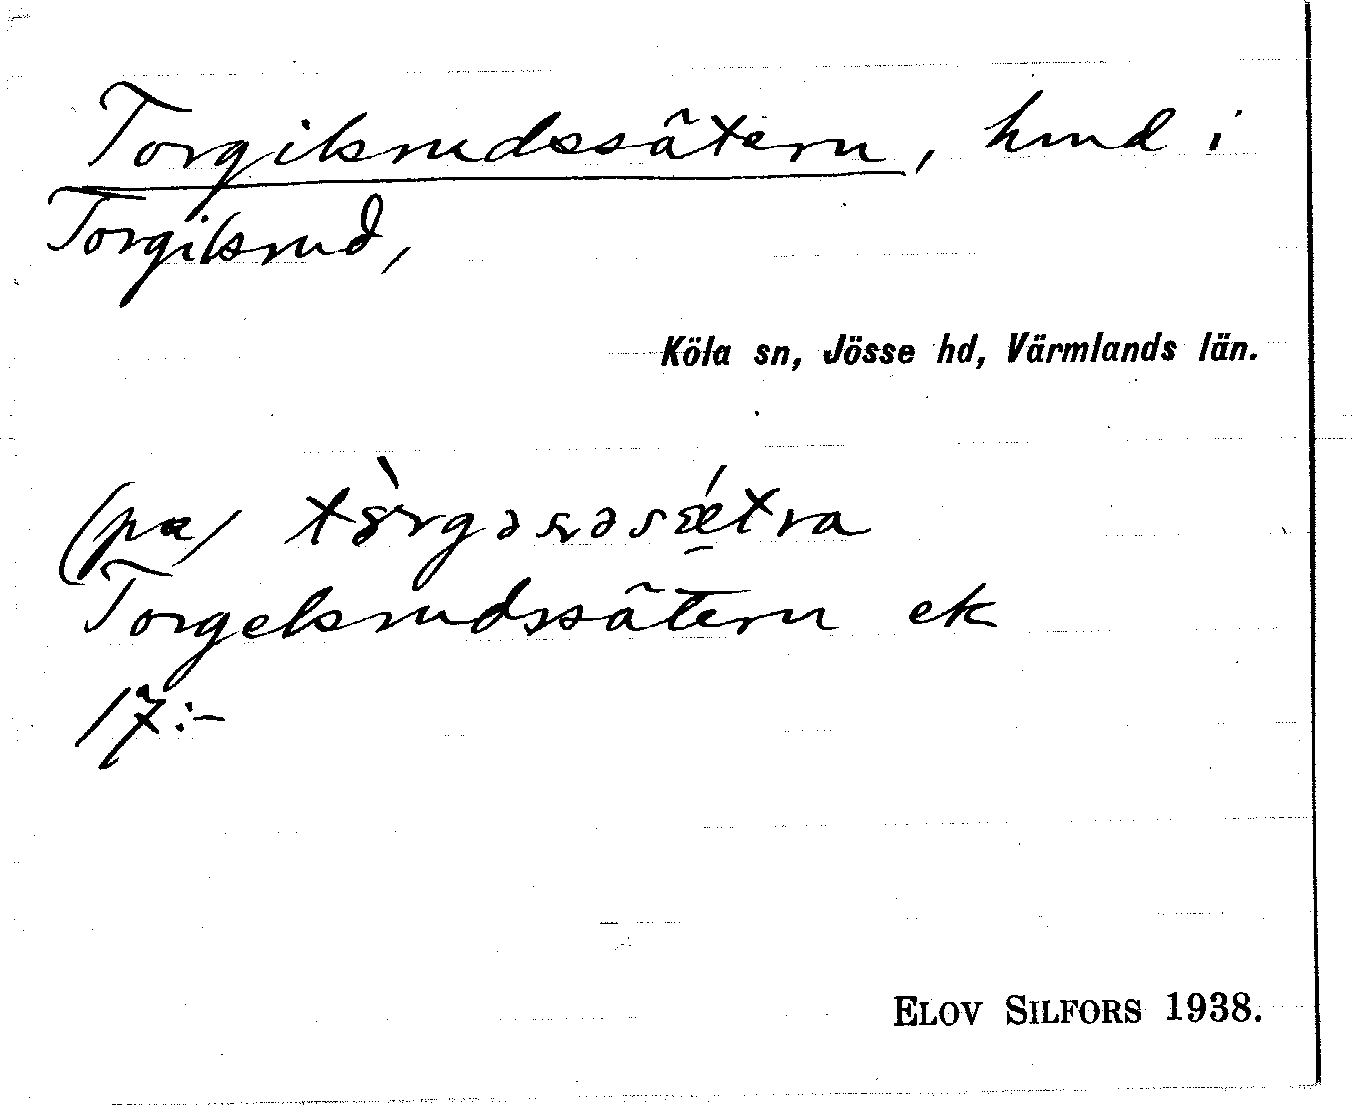 Torgilsrudssätern, hmd i
Torgilsrud,
Köla sn, Jösse hd, Värmlands län.
(på)
Torgelsrudssätern ek
17:-
ELOV SILFORS 1938.